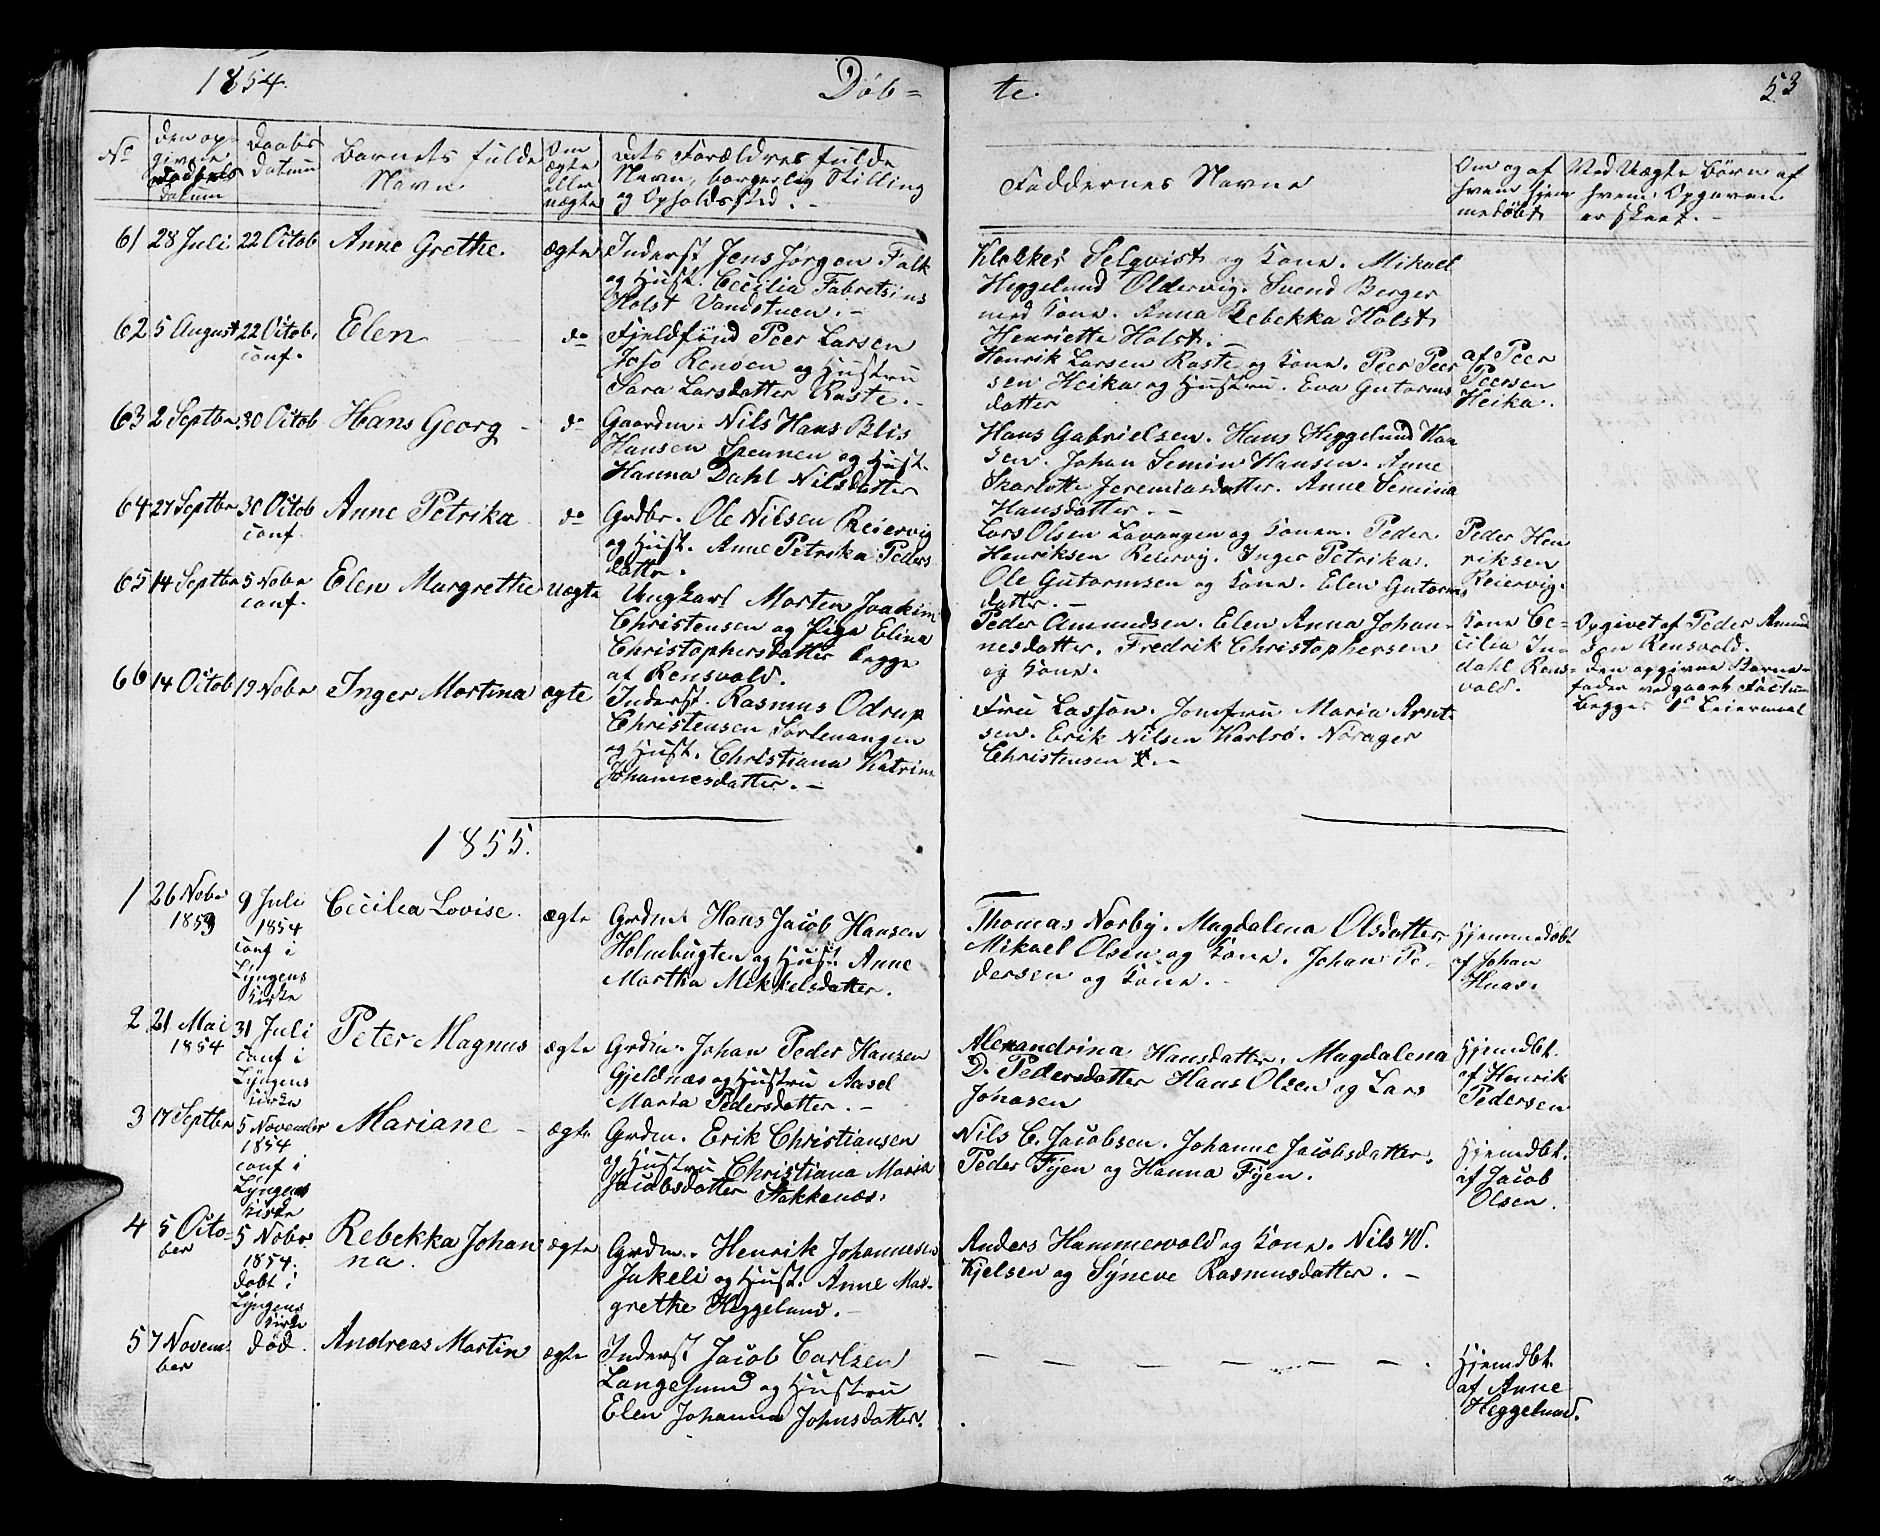 1854.
Døb=
te.
53
No
Den op-
givne
Fødsels
Datum
Daabs
Datum
Barnets fulde
Navn
Om
ægte
eller
uægte
Dets Forældres fulde
Navn, borgerlig Stilling
og Opholdssted. -
Faddernes Navne
Om og af
hvem hjem
medøbt
Ved Uægte Børn af
hvem Opgaven
er skeet. -
61 28 Juli 22 Octob Anne Grethe. ægte
Inderst Jens Jørgen Falk
og Hust. Cecilia Fabritsius
Holst Vandstuen. -
Klokker Selqvist og Kone. Mikael
Heggelund Oldervig. Svend Berger
med Kone. Anna Rebekka Holst
Henriette Holst. -
62 5 August 22 Octob. Elen do
conf.
Fjeldfind Peer Larsen
Joso Rensen og Hustru
Sara Larsdatter Raste. -
Henrik Larsen Raste og Kone. Peer Peer
sen Heika og Hustru. Eva Gutorms
datter
af Peer
Peersen
Heika.
63 2 Septbr 30 Octob Hans Georg - do
Gaardm. Nils Hans Blis
Hansen Spennen og Hust.
Hanna Dahl Nilsdatter
Hans Gabrielsen. Hans Heggelund Han
sen. Johan Semin Hansen. Anne
Skarlotte Jeremiasdatter. Anne Semina
Hansdatter. -
64 27 Septbr 30 Octob Anne Petrika do
conf.
Grdbr. Ole Nilsen Reiervig
og Hust. Anne Petrika Peders
datter.
Lars Olsen Lavangen og Konen. Peder
Henriksen Reiervig. Inger Petrika.
Peder Hen
riksen
Reiervig.
65 14 Septbr 5 Nobr Elen Margrethe uægte
conf.
Ungkarl Morten Joakim
Christensen og Pige Elina
Christophersdatter begge
af Rensvold.
Ole Gutormsen og Kone. Elen Gutorms
datter. -
Peder Amundsen. Elen Anna Johan-
nesdatter. Fredrik Christophersen
og Kone.
Kone Ce=
cilia In=
dahl Rens=
vold.
Opgivet af Peder Amund
sen Rensvold.
Den opgivne Barne=
fader vedgaaet Factum
Begges 1ste Leiermaal
66 14 Octob 19 Nobr Inger Martina ægte
Inderst. Rasmus Odrup
Christensen Sørlenangen
og Hust. Christiana Katrine
Johannesdatter. -
Fru Lasson. Jomfru Maria Arnt=
sen. Erik Nilsen Karlsø. Norager
Christensen. -
1855.
1 26 Nobr 9 Juli Cecilia Lovise. ægte
1853 1854
conf i
Lyngens
Kirke
Grdm. Hans Jacob Hansen
Holmbugten og Hust. Anne
Martha Mikkelsdatter.
Thomas Norby. Magdalena Olsdatter
Mikael Olsen og Kone. Johan Pe-
dersen og Kone. -
Hjemmedøbt
af Johan
Huas.
2 21 Mai 31 Juli Peter Magnus ægte
1854 conf i
Lyngens
Kirke
Grdm. Johan Peder Hansen
Gjeldnæs og Hustru Aasel
Maria Pedersdatter. -
Alexandrina Hansdatter. Magdalena
D. Pedersdatter Hans Olsen og Lars
Jonasen
Hjemdbt.
af Henrik
Pedersen
3 17 Septbr 5 November Mariane - ægte
1854
conf i
Lyngens
Kirke
Grdm. Erik Christiansen
og Hustru Christiana Maria
Jacobsdatter Stakkenæs.
Nils C. Jacobsen. Johanne Jacobsdatter.
Peder Fyen og Hanna Fyen.
Hjemdbt.
af Jacob
Olsen.
4 5 Octo= 5 Nobr Rebekka Johan ægte
ber 1854. na.
døbt i
Lyngens
Kirke
Grdm. Henrik Johannesen
Jakeli og Hust. Anne Mar-
grethe Heggelund. -
Anders Hammervold og Kone. Nils W.
Kjelsen og Syneve Rasmusdatter. -
5 7 Novem død. Andreas Martin ægte
ber
Inderst Jacob Carlsen
Langesund og Hustru
Elen Johanna Johnsdatter.
- - - - - - .
Hjemdbt.
af Anne
Heggelund.